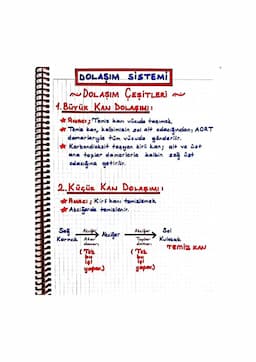 DOLAŞIM SİSTEMİ
DOLAŞIM ÇEŞİTLERİ
1. BÜYÜK KAN DOLAŞIMI:
Amacı; Temiz kanı vücuda taşımak.
Temiz kan, kalbimizin sol alt odacığından; AORT
damarlarıyla tüm vücuda gönderilir.
Karbondioksit taşıyan kirli kan; alt ve üst
ana toplar damarlarla kalbin sağ üst
odacığına getirilir.
2. KÜÇÜK KAN DOLAŞIMI:
Amacı; Kirli kanı temizlemek
Akciğerde temizlenir.
Sağ Karıncık → Akciğer Atar damarı → Akciğer → Akciğer Toplar damarı → Sol Kulakçık
TEMİZ KAN
(Tek bu işi yapar.)
(Tek bu işi yapar.)